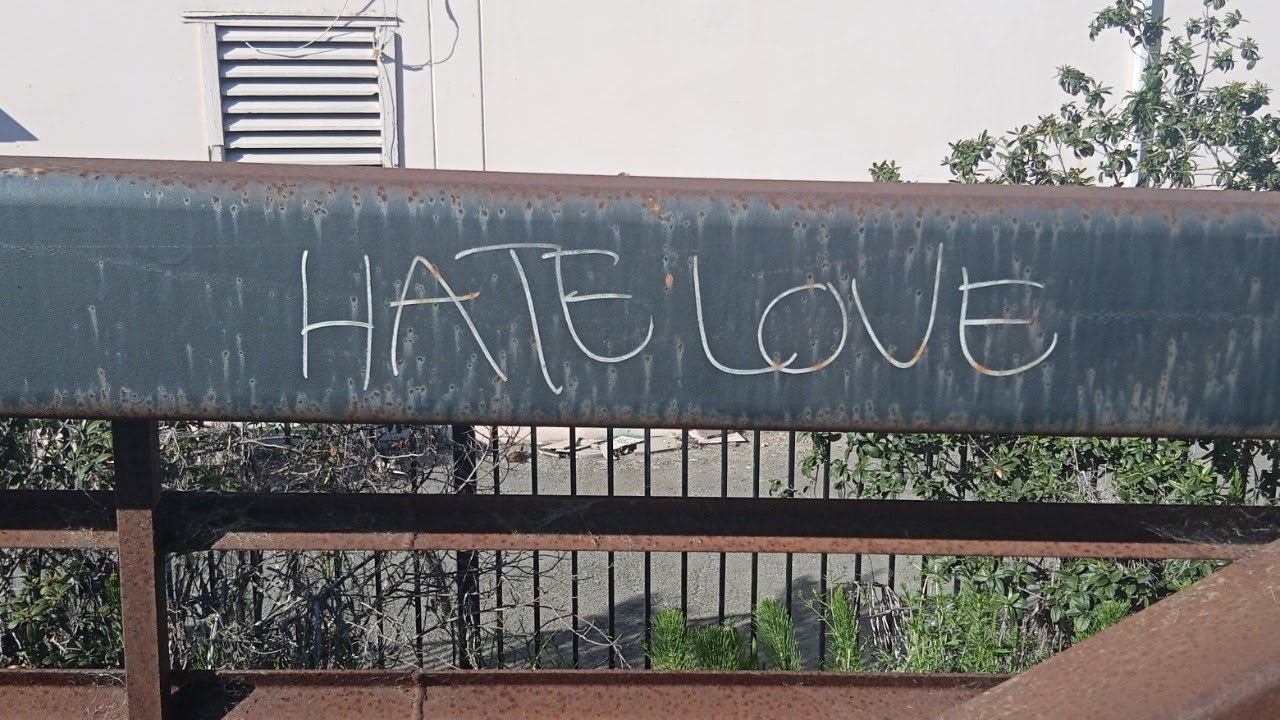 HATE LOVE